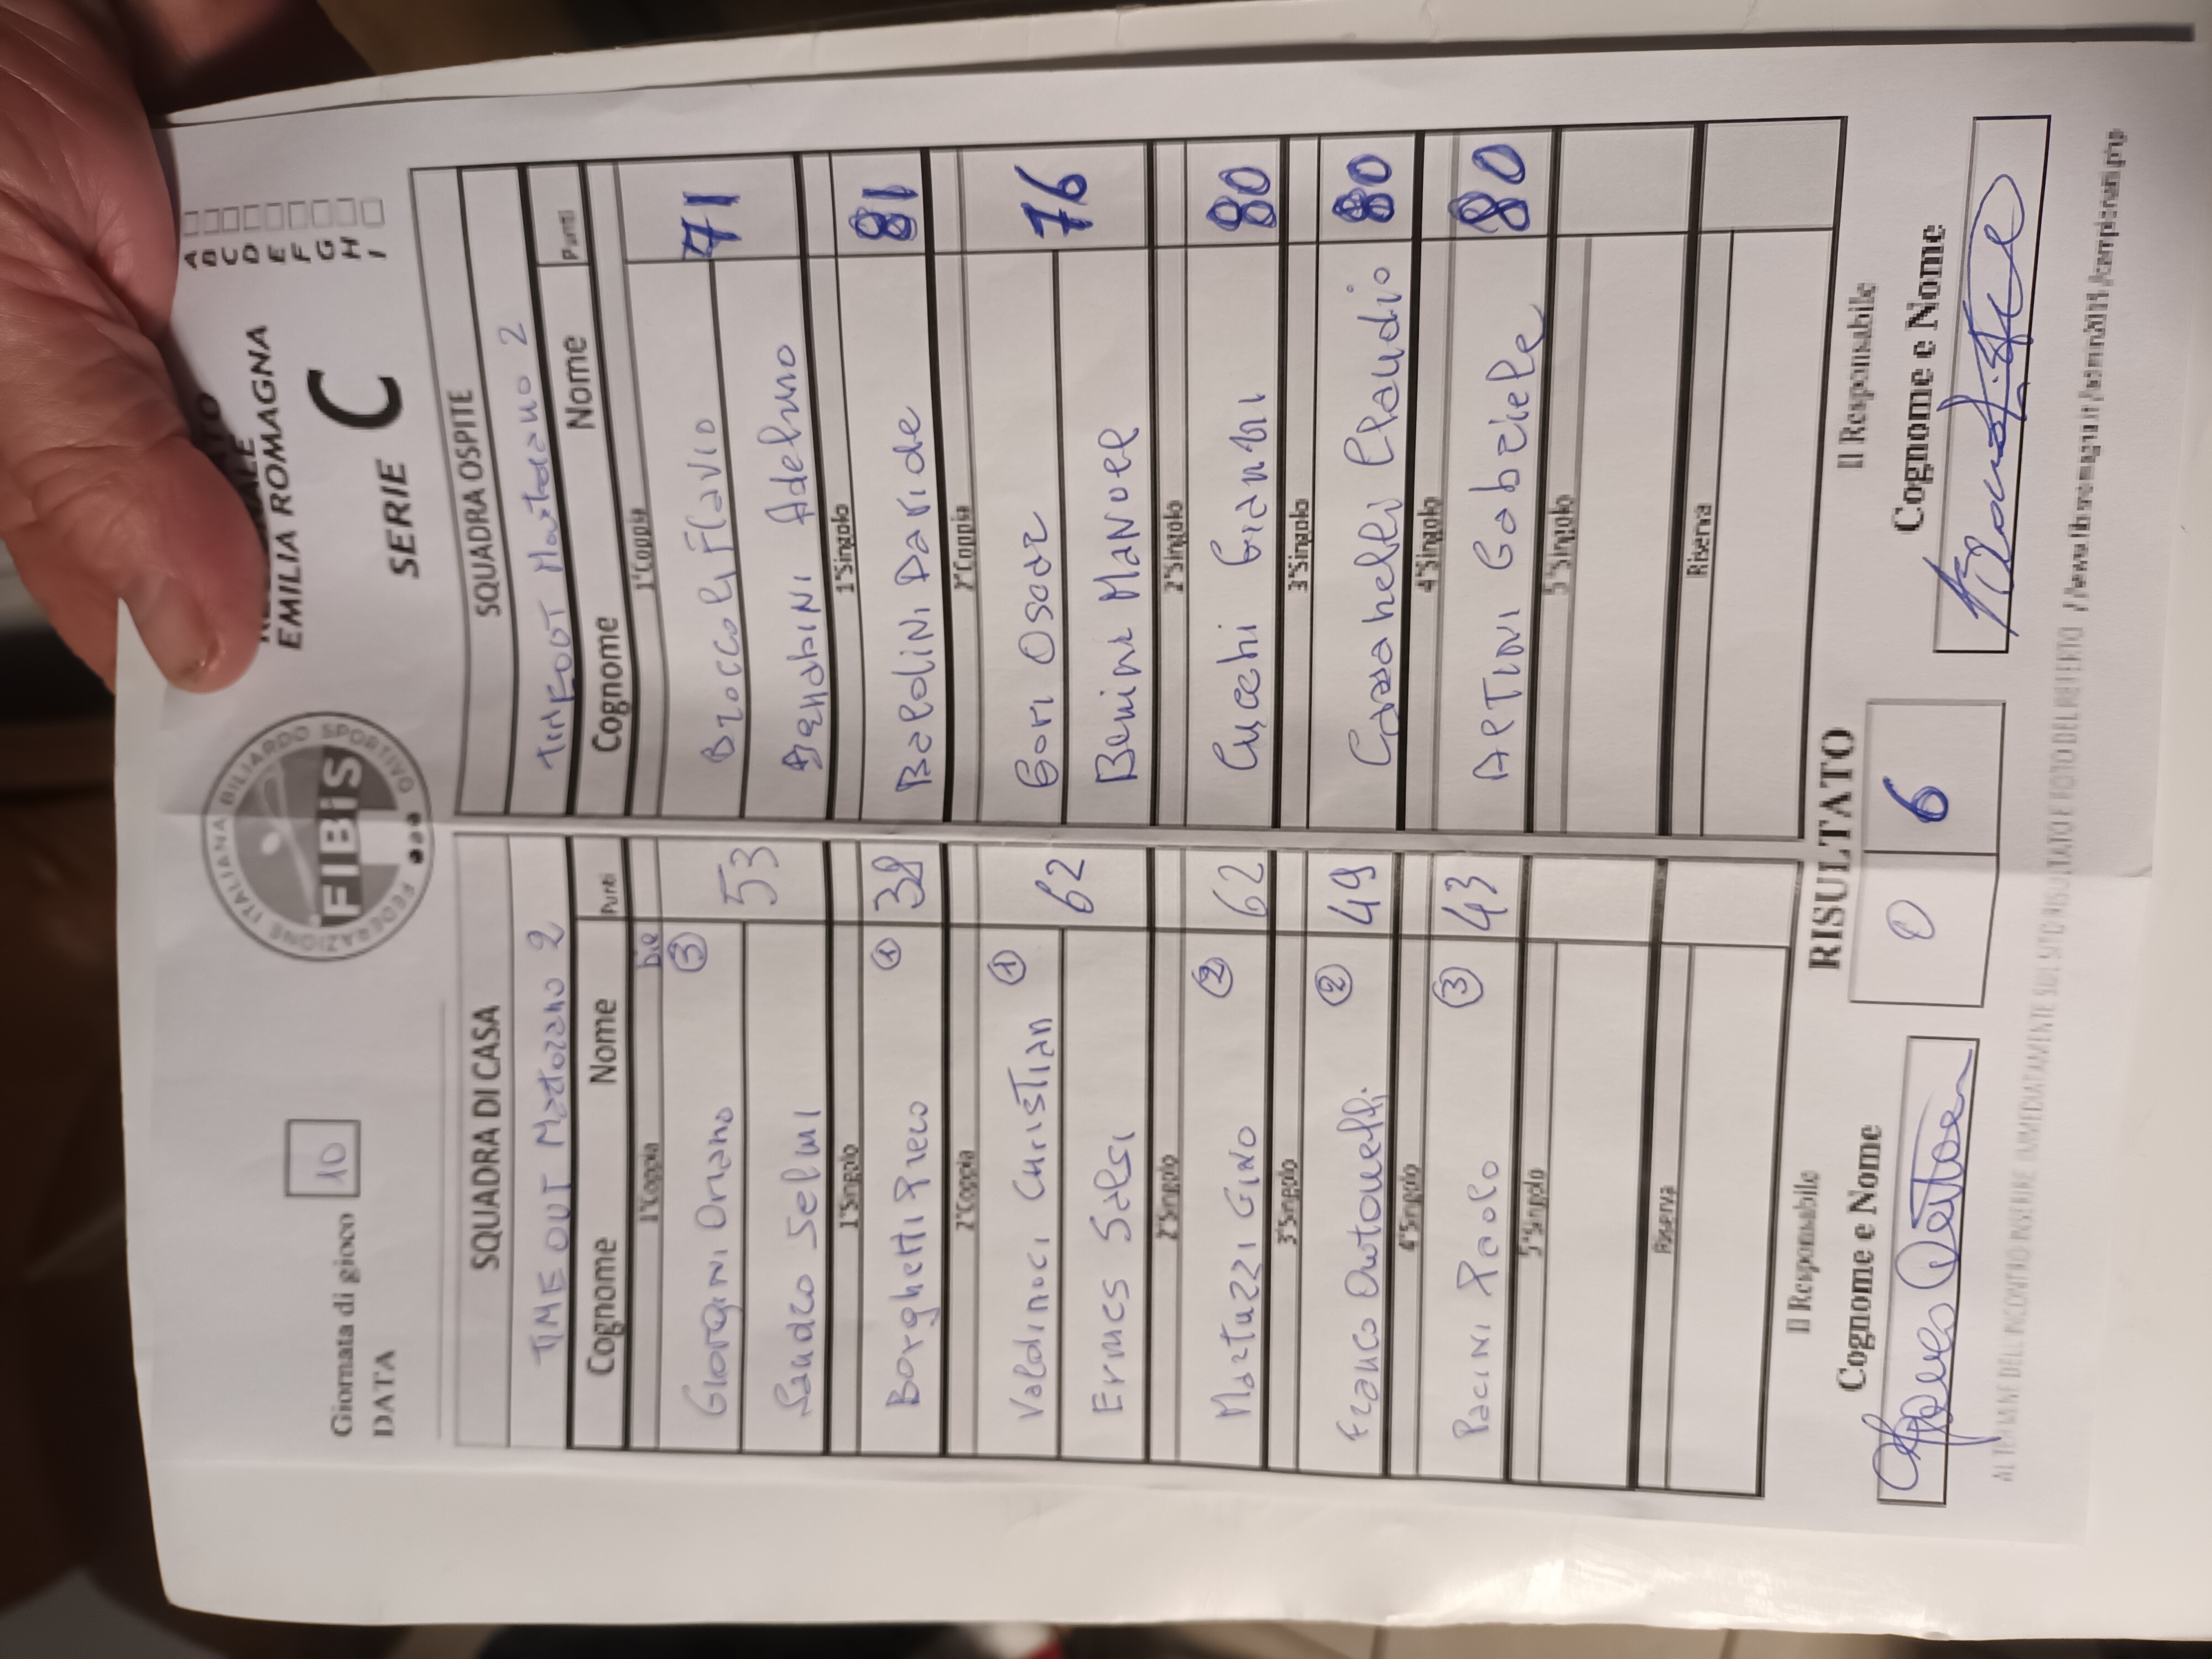 Giornata di gioco 10
DATA
FEDERAZIONE ITALIANA BILIARDO SPORTIVO
FIBiS
EMILIA ROMAGNA
SERIE C
A
B
C
D
E
F
G
H
I
SQUADRA DI CASA
TIME OUT Martorano 2
Cognome Nome Punti
1°Coppia
GIORGINI Oriano 3 53
Sandro Selmi
1°Singolo
Borghetti Piero 1 38
2°Coppia
Valdinoci Christian 1 62
Ermes Salsi
2°Singolo
Martuzzi GINO 2 62
3°Singolo
Franco Antonelli. 2 49
4°Singolo
PaciNi Paolo 3 43
5°Singolo
Riserva
SQUADRA OSPITE
Martorano 2
Cognome Nome Punti
1°Coppia
Broccoli Flavio 71
Adelmo
1°Singolo
BaldiNi Davide 81
2°Coppia
Gori Oscar 76
Benini MaNuel
2°Singolo
Gianni 80
3°Singolo
Claudio 80
4°Singolo
Gabriele 80
5°Singolo
Riserva
RISULTATO
0 6
Il Responsabile
Cognome e Nome
Il Responsabile
Cognome e Nome